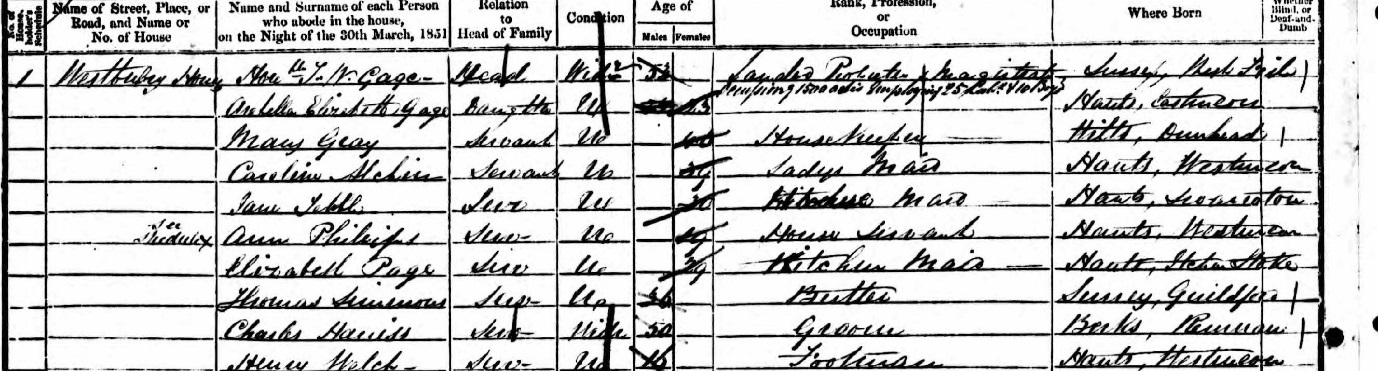 No. of House-holder's Schedule
Name of Street, Place, or Road, and Name or No. of House
Name and Surname of each Person who abode in the house, on the Night of the 30th March, 1851
Relation to Head of Family
Condition
Age of
Males Females
Rank, Profession, or Occupation
Where Born
Whether Blind, or Deaf-and-Dumb
1 Westbury House Honble T. W. Gage Head Widr Landed Proprietor & Magistrate Sussex, West
occupying 1500 acres employing 25 & 10 Boys
Elizabeth Gage Daughter U Hants,
Mary Gray Servant U House Keeper Wilts,
Caroline Servant U Ladys Maid Hants, Westmeon
Jane Serv U Maid Hants,
See Ann Philips Serv U 19 House Servant Hants, Westmeon
Elizabeth Page Serv U 29 Kitchen Maid Hants, Itchen Stoke
Thomas Simmons Serv U 36 Butler Surrey, Guildford
Charles Serv 50 Groom Berks,
Henry Welch Serv U 16 Footman Hants, Westmeon